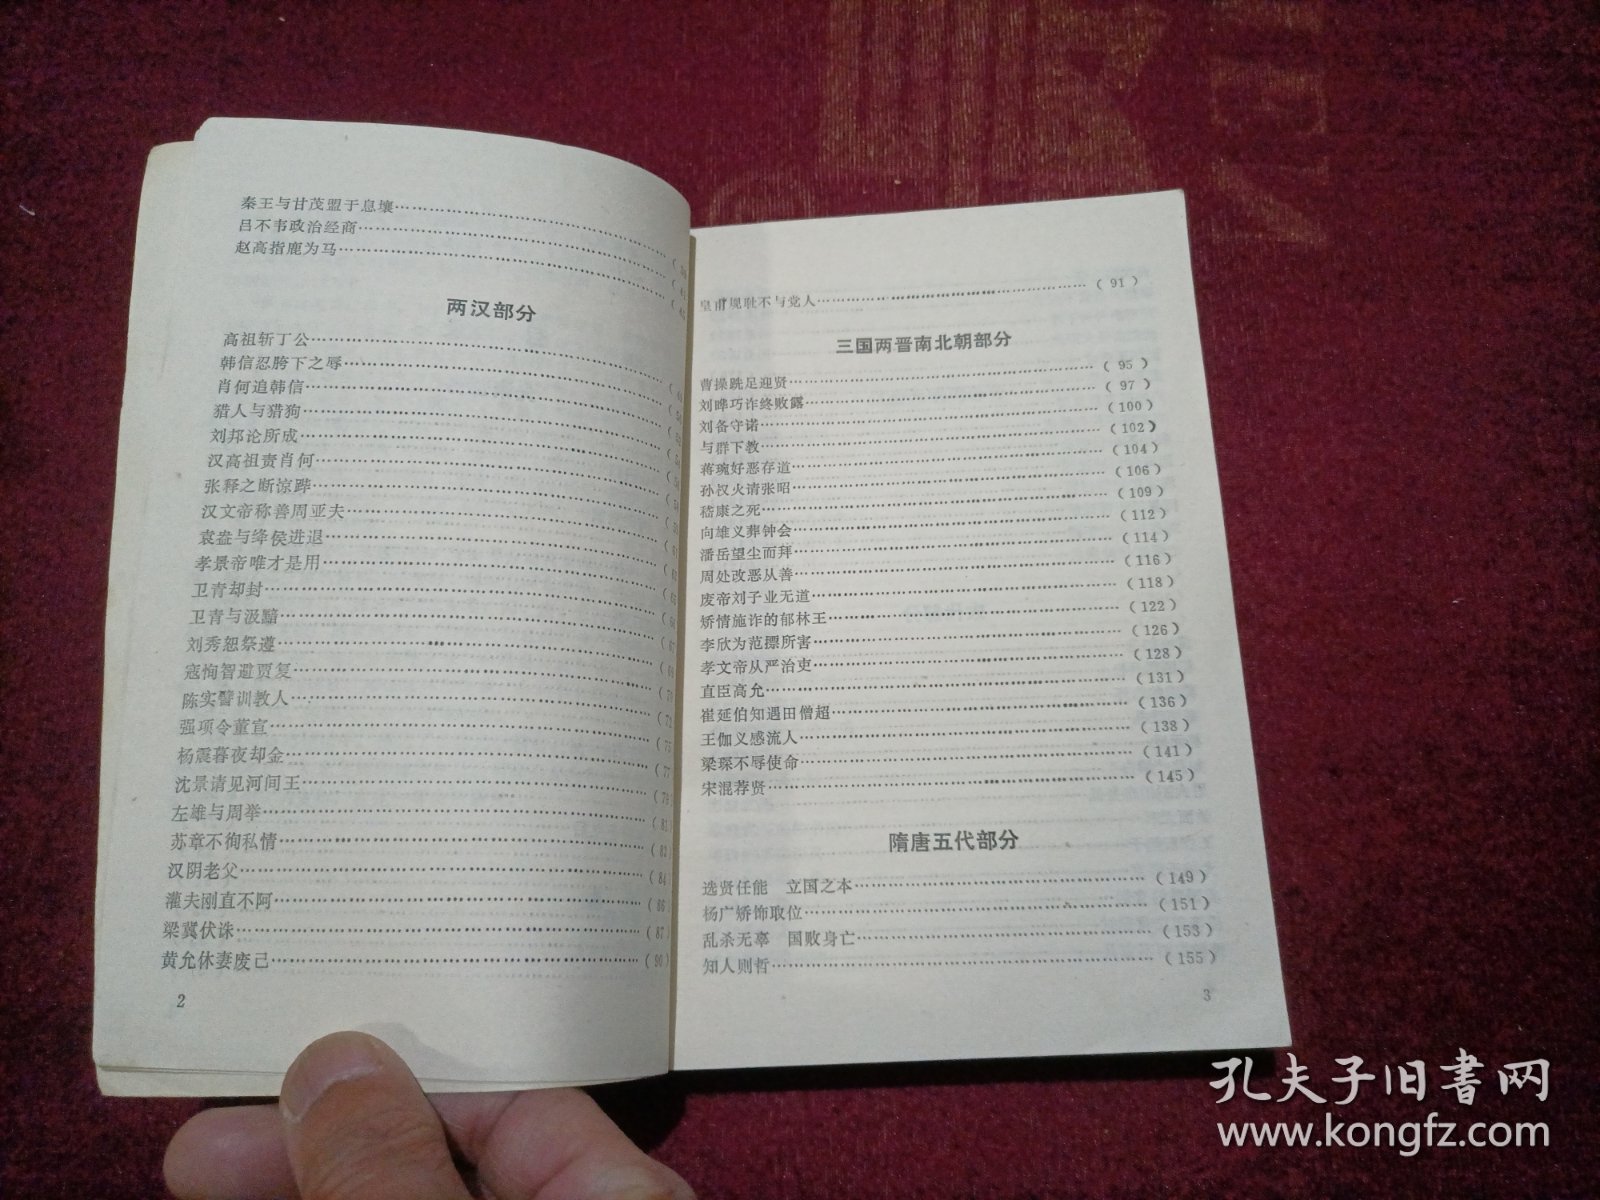 秦王与甘茂盟于息壤
吕不韦政治经商
赵高指鹿为马
两汉部分
高祖斩丁公
韩信忍胯下之辱
肖何追韩信
猎人与猎狗
刘邦论所成
汉高祖责肖何
张释之断惊跸
汉文帝称善周亚夫
袁盎与绛侯进退
孝景帝唯才是用
卫青却封
卫青与汲黯
刘秀恕祭遵
寇恂智避贾复
陈实譬训教人
强项令董宣
杨震暮夜却金……(77
沈景请见河间王……(79)
左雄与周举……(81)
苏章不徇私情……(82)
汉阴老父……(84
灌夫刚直不阿……(86)
梁冀伏诛……(87)
黄允休妻废己……(90)
2
皇甫规耻不与党人……(91)
三国两晋南北朝部分
曹操跣足迎贤……(95)
刘晔巧诈终败露……(97)
刘备守诺……(100)
与群下教……(102)
蒋琬好恶存道……(104)
孙权火请张昭……(106)
嵇康之死……(109)
向雄义葬钟会……(112)
潘岳望尘而拜……(114)
周处改恶从善……(116)
废帝刘子业无道……(118)
矫情施诈的郁林王……(122)
李欣为范摽所害……(126)
孝文帝从严治吏……(128)
直臣高允……(131)
崔延伯知遇田僧超……(136)
王伽义感流人……(138)
梁琛不辱使命……(141)
宋混荐贤……(145)
隋唐五代部分
选贤任能 立国之本……(149)
杨广矫饰取位……(151)
乱杀无辜 国败身亡……(153)
知人则哲……(155)
3
孔夫子旧书网
www.kongfz.com